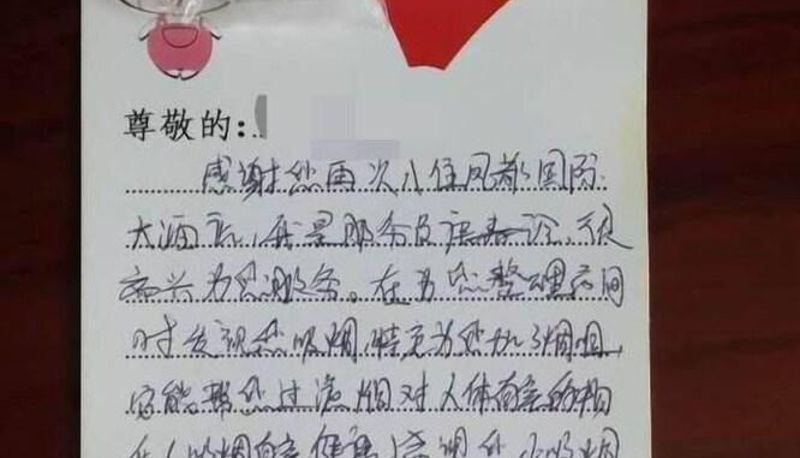 尊敬的:
感谢您再次入住凤都国际
大酒店,我是服务员 ,很
高兴为您服务。在为您整理房间
时发现您吸烟,特意为您加了烟咀,
它能帮您过滤烟对人体有害的物
(吸烟有害健康)